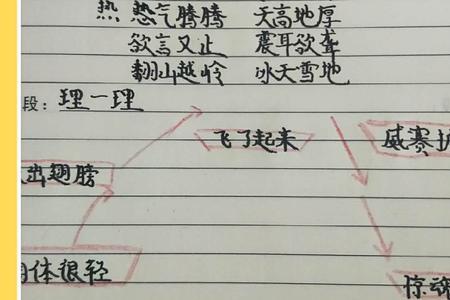 热 热气腾腾 天高地厚
欲言又止 震耳欲聋
翻山越岭 冰天雪地
段：理一理
飞了起来 威赛
出翅膀
体很轻 惊魂